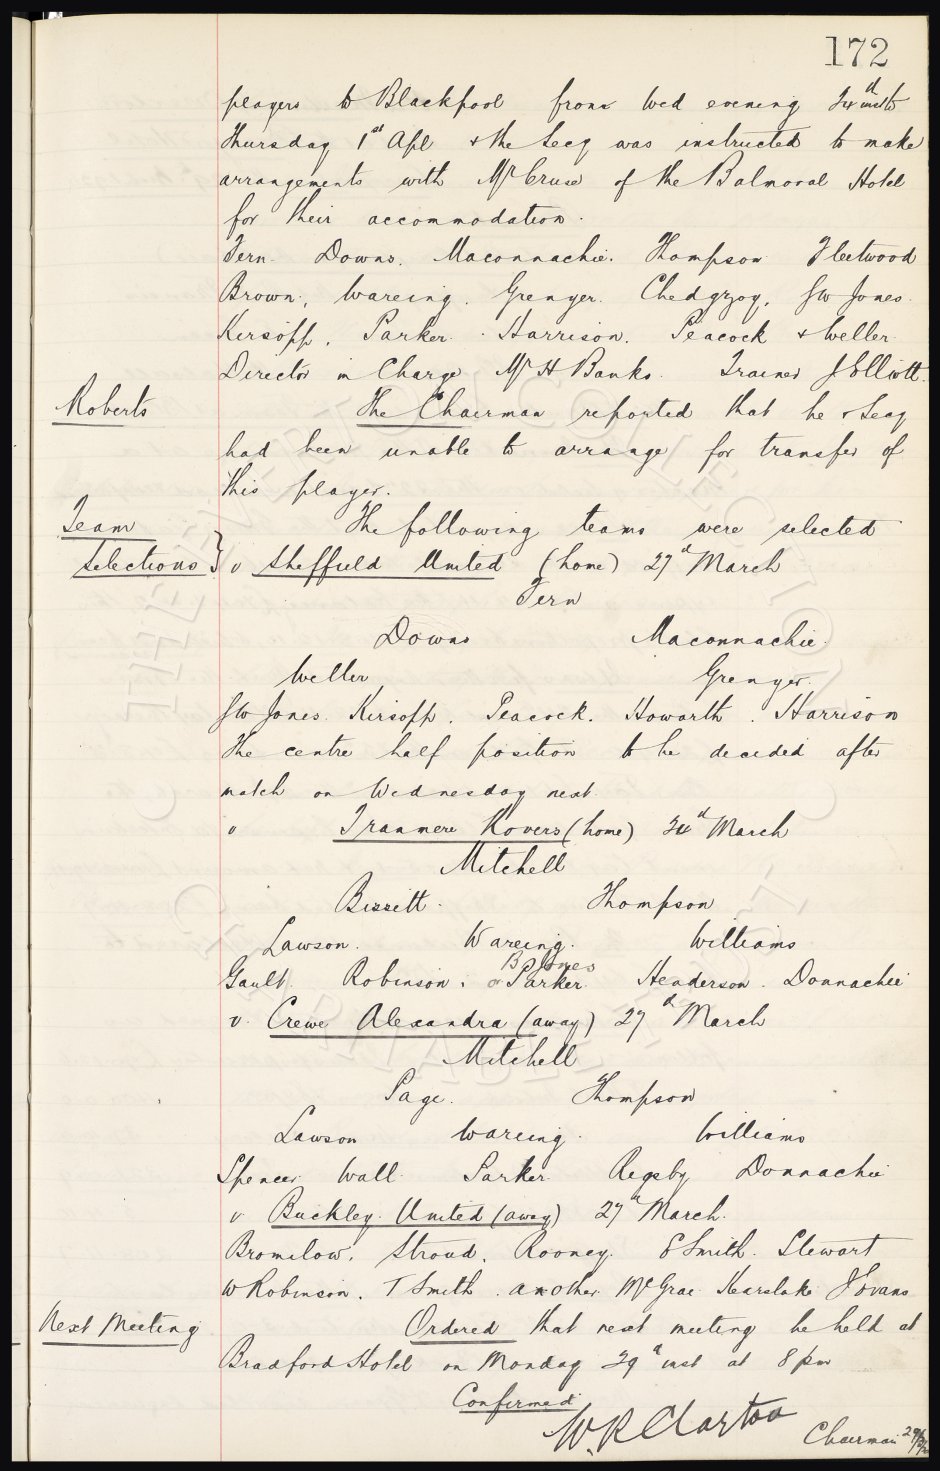 172
players to Blackpool from Wed evening 24th inst to
Thursday 1st Apl & the Secy was instructed to make
arrangements with Mr Cruse of the Balmoral Hotel
for their accommodation.
Fern. Downs. Maconnachie. Thompson Fleetwood
Brown, Wareing. Grenyer. Chedgzoy, J W Jones.
Kirsopp, Parker. Harrison. Peacock & Weller.
Director in Charge Mr H Banks. Trainer J Elliott.
Roberts
The Chairman reported that he & Secy
had been unable to arrange for transfer of
this player.
Team
Selections }
The following teams were selected
v Sheffield United (home) 27th March
Fern
Downs Maconnachie.
Weller Grenyer.
J W Jones. Kirsopp. Peacock. Howarth. Harrison
The centre half position to be decided after
match on Wednesday next.
v Tranmere Rovers (home) 24th March
Mitchell
Bissett. Thompson
Lawson. Wareing. Williams
B Jones
Gault. Robinson. or Parker. Henderson. Donnachie
v. Crewe Alexandra (away) 27th March
Mitchell
Page. Thompson
Lawson Wareing. Williams
Spencer Wall Parker Rigsby Donnachie
v. Buckley United (away) 27th March.
Bromilow, Stroud, Rooney. E Smith. Stewart
W Robinson. T Smith. another McGrae Kearslake J Evans
Next Meeting
Ordered that next meeting be held at
Bradford Hotel on Monday 29th inst at 8 pm
Confirmed
W. R Clayton
Chairman 29/3/20